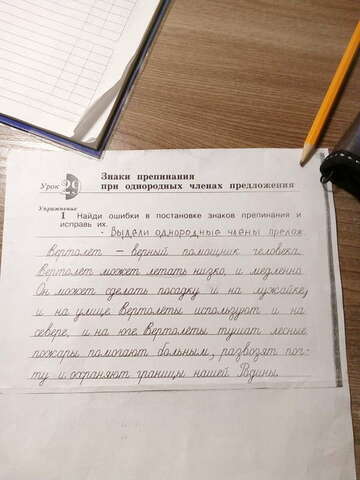 Урок 29
Знаки препинания
при однородных членах предложения
Упражнение
1 Найди ошибки в постановке знаков препинания и
исправь их.
- Выдели однородные члены предлож.
Вертолёт – верный помощник человека.
Вертолёт может летать низко, и медленно.
Он может сделать посадку и на лужайке,
и на улице Вертолёты используют и на
севере, и на юге. Вертолёты тушат лесные
пожары помогают больным, развозят поч-
ту и охраняют границы нашей Родины.